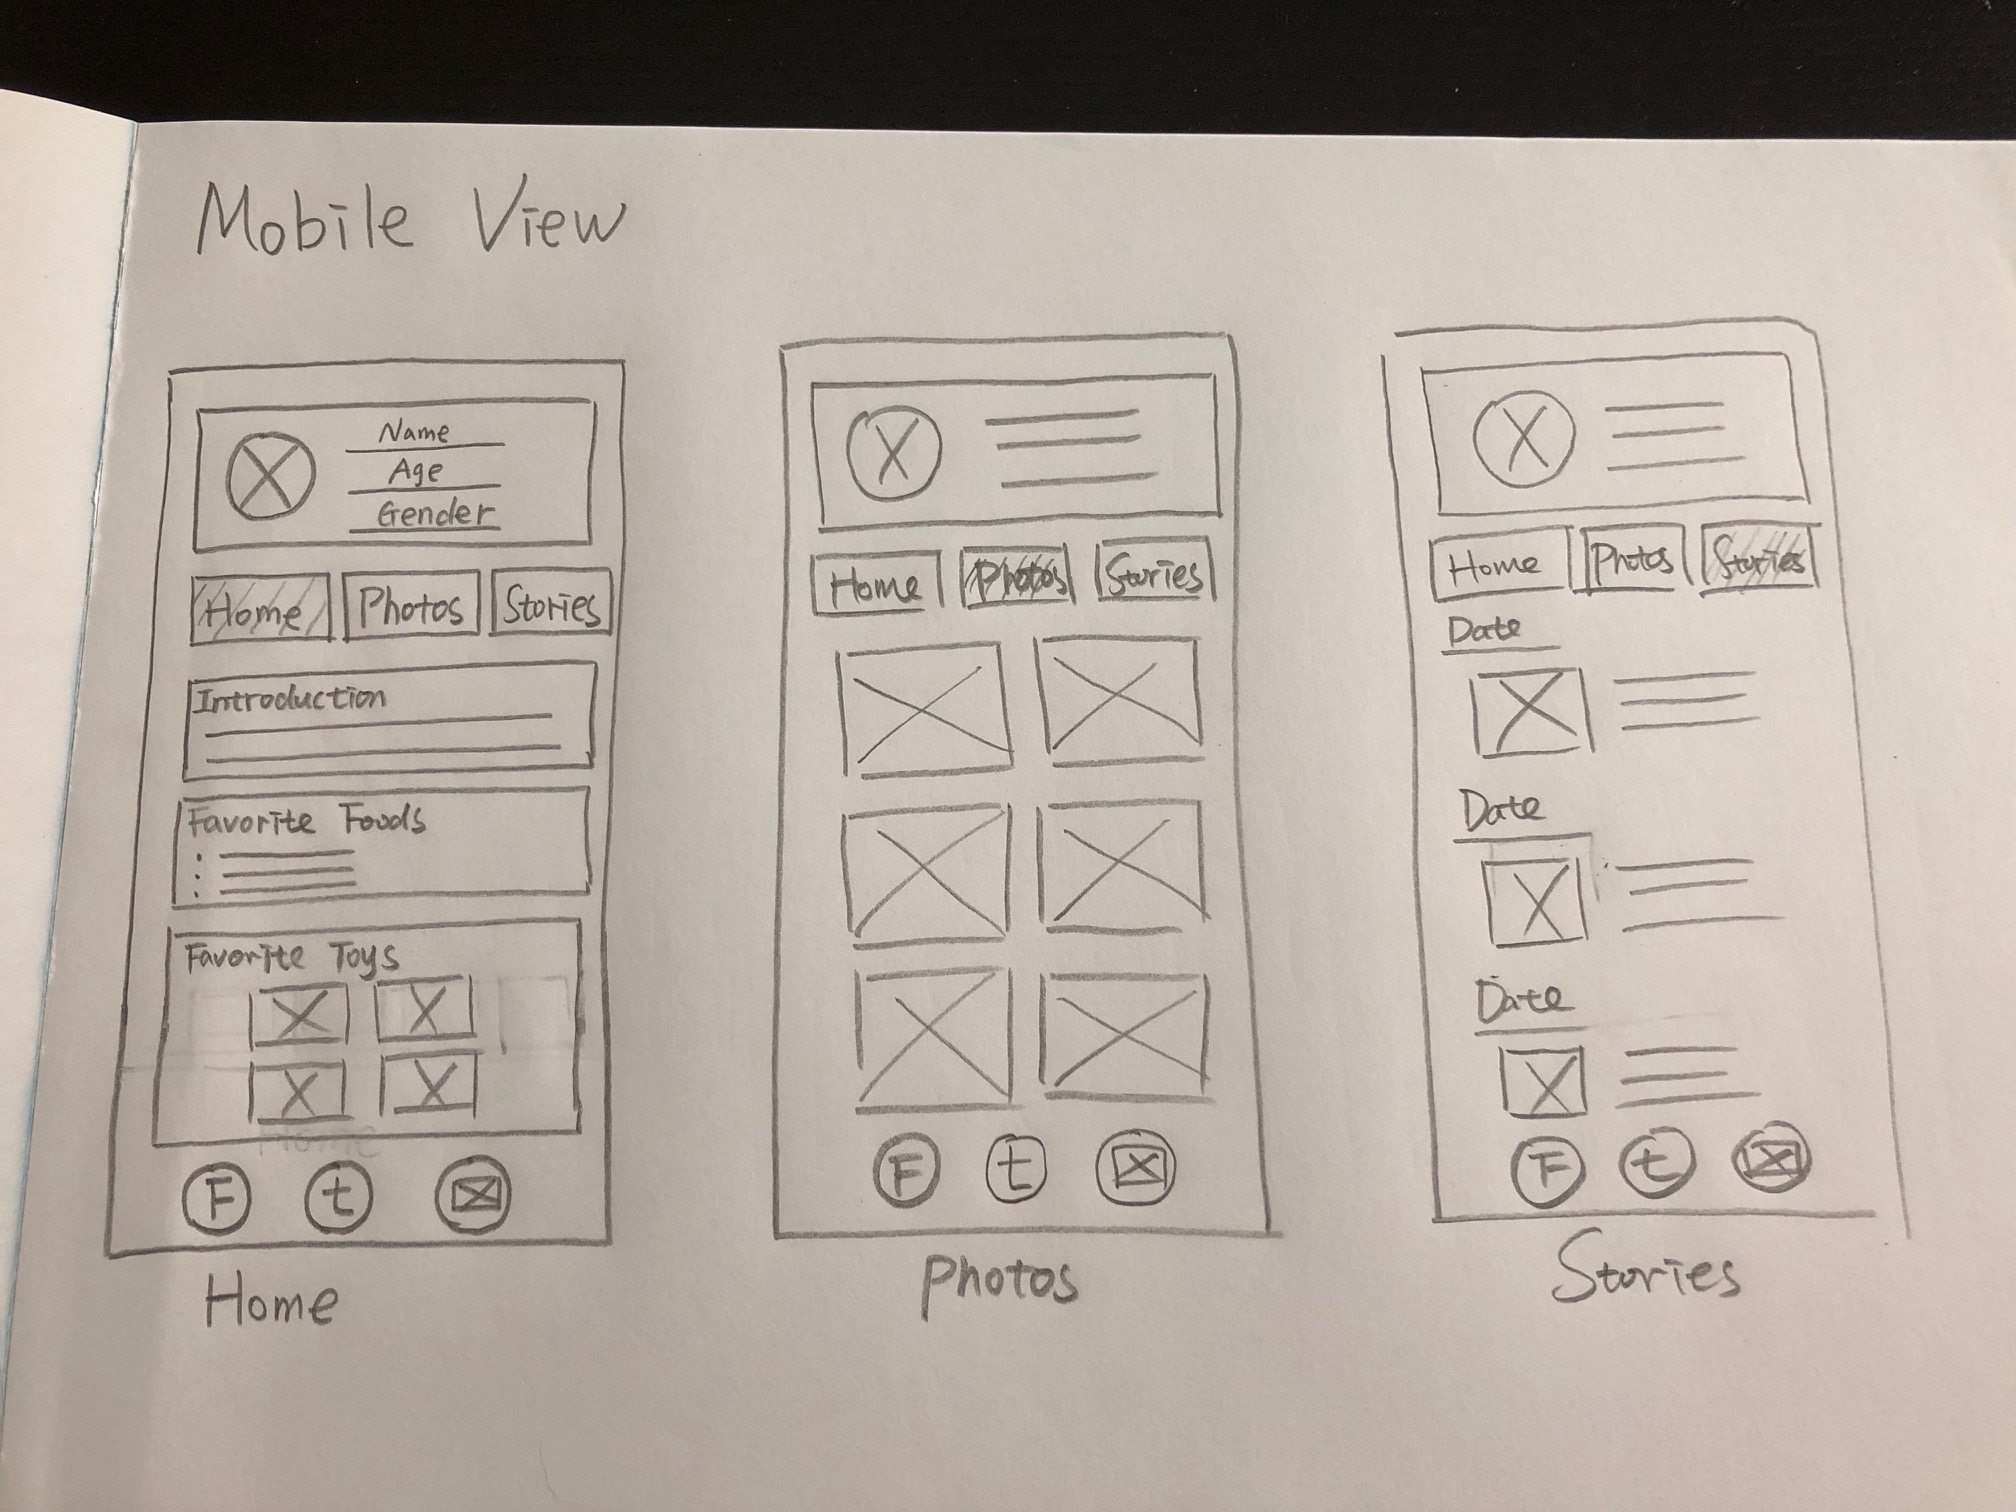 Mobile View
Name
Age
Gender
Home Photos Stories
Introduction
Favorite Foods
Favorite Toys
Home
F t
Home
Home Photos Stories
F t
Photos
Home Photos Stories
Date
Date
Date
F t
Stories